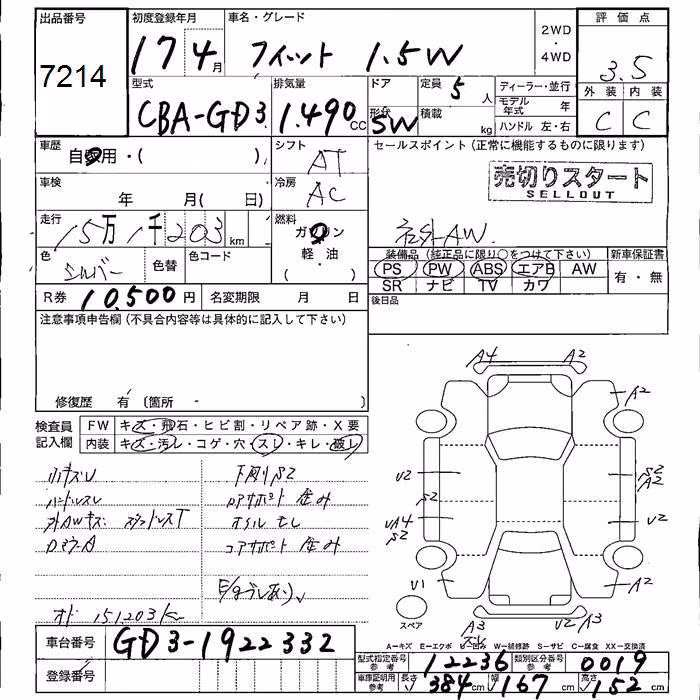 出品番号 初度登録年月 車名・グレード 2WD・4WD 評価点
7214 17 4月 フィット 1.5W 3.5
型式 排気量 ドア形状 定員 5人 ディーラー・並行 外装 内装
CBA-GD3 1.490cc 5W 積載 kg モデル年式 年 C C
ハンドル 左・右
車歴 自家用・( ) シフト AT セールスポイント (正常に機能するものに限ります)
車検 年 月( 日) 冷房 AC 売切りスタート
SELLOUT
走行 15万1千203km 燃料 ガソリン・軽・油( ) 社外AW.
色 シルバー 色替 色コード 装備品 (純正品に限り○をつけて下さい) 新車保証書
PS PW ABS エアB AW 有・無
SR ナビ TV カワ
R券 10,500円 名変期限 月 日 後日品
注意事項申告欄 (不具合内容等は具体的に記入して下さい)
修復歴 有 (箇所 -
検査員記入欄 FW キズ・飛石・ヒビ割・リペア跡・X要
内装 キズ・汚レ・コゲ・穴・スレ・キレ・破レ
A4 A2
A2
小キズU 下廻りS2
ハンドルスレ コアサポート 歪み
外AWキズ オイル モレ
コアサポート 歪み
U2 S2 A2
S2
UA4 S2 U2
U1 A2
スペア A3 スレ U2 A3
オド 151203km
A=キズ E=エクボ U=凹み W=補修跡 S=サビ C=腐食 XX=交換済
車台番号 GD3-1922332
登録番号
型式指定番号参考 12236 類別区分番号参考 0019
車庫証明用参考 長さ 384cm 幅 167cm 高さ 152cm